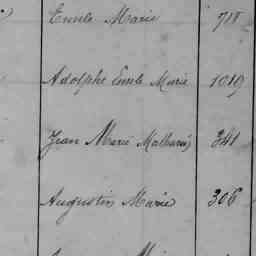 Emile Marie 718
Adolphe Emile Marie 1019
Jean Marie 341
Augustin Marie 306